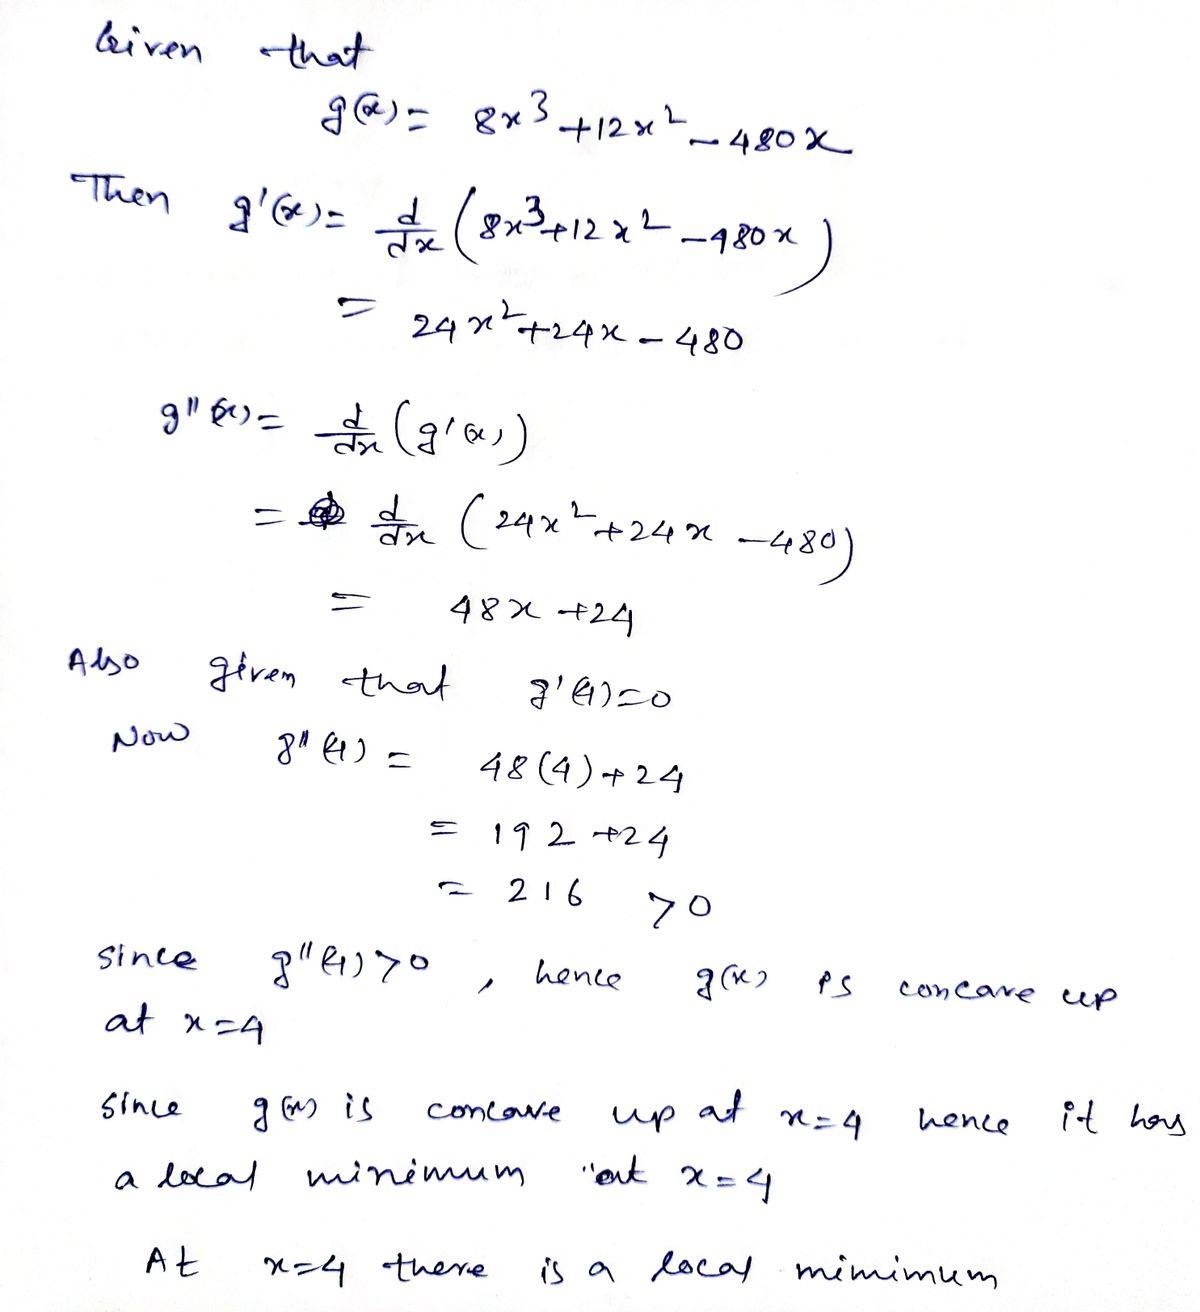 Given that
g(x) = 8x³ + 12x² - 480x
Then g'(x) = d/dx (8x³ + 12x² - 480x)
= 24x² + 24x - 480
g''(x) = d/dx (g'(x))
= d/dx (24x² + 24x - 480)
= 48x + 24
Also given that g'(4) = 0
Now g''(4) = 48(4) + 24
= 192 + 24
= 216 > 0
since g''(4) > 0 , hence g(x) is concave up
at x = 4
Since g(x) is concave up at x = 4 hence it has
a local minimum at x = 4
At x = 4 there is a local mimimum